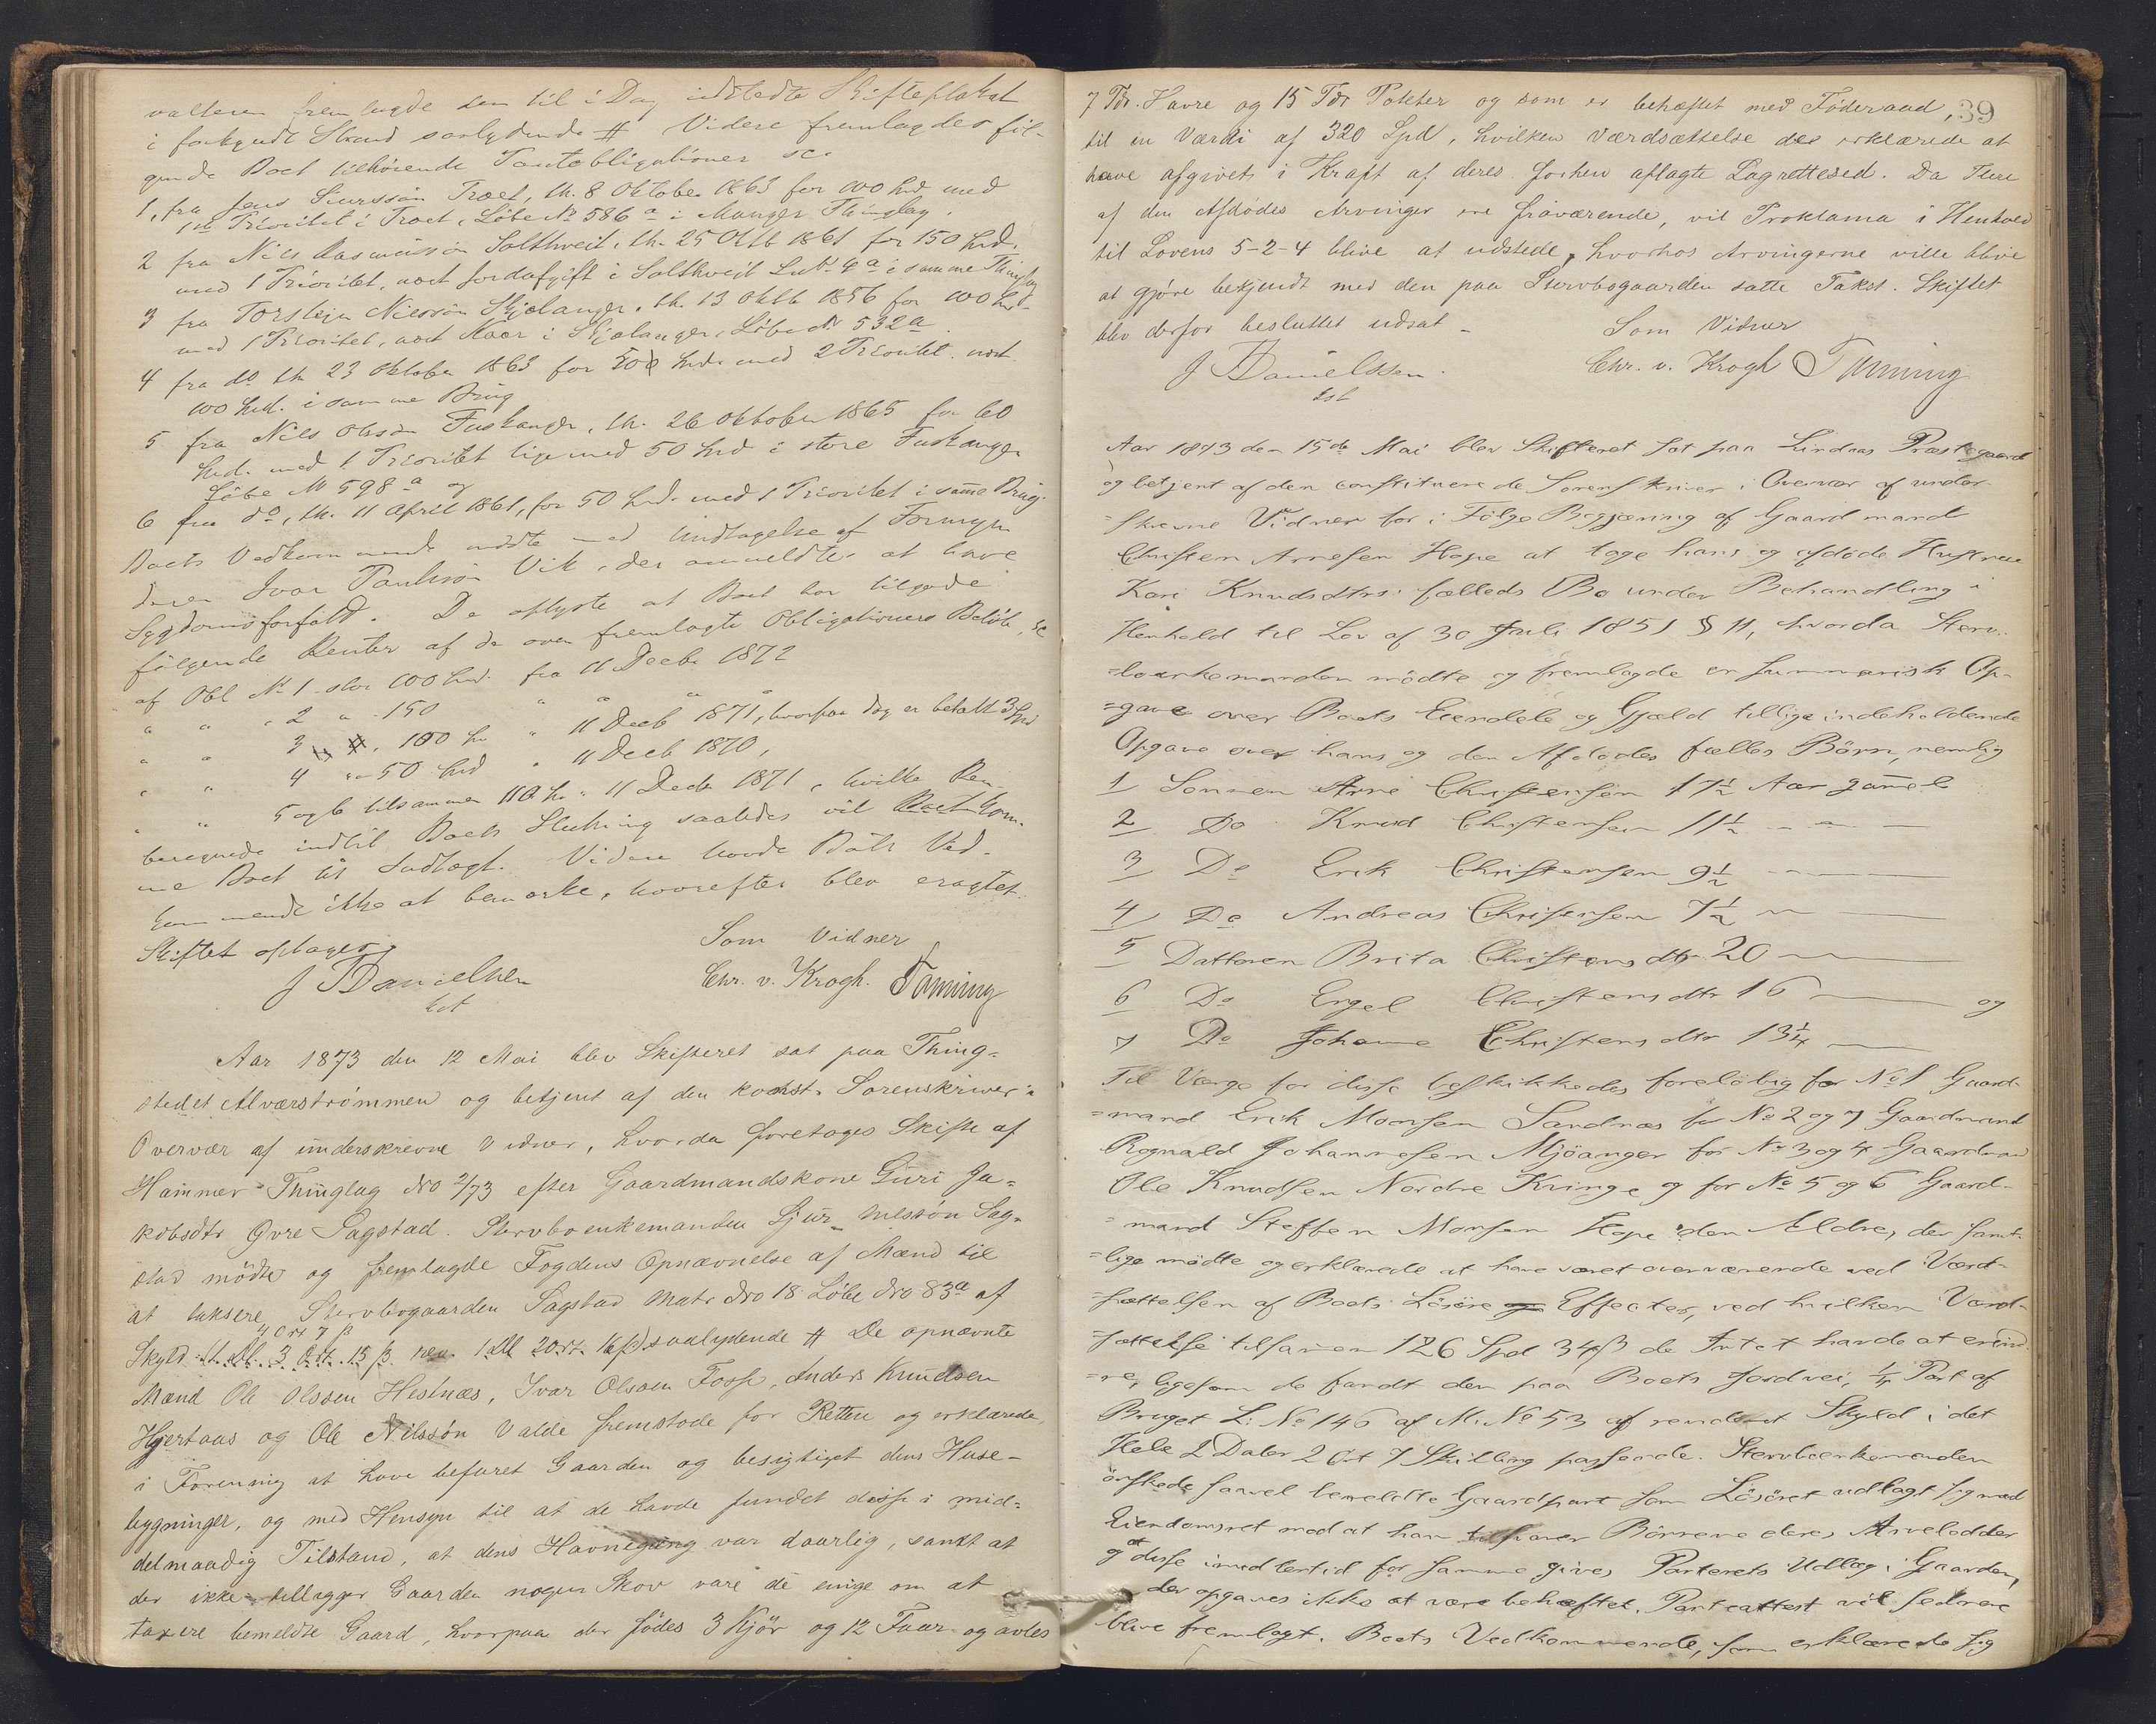 valteren fremlagde den til i Dag udstedte Skifteplakat
i forkyndt Stand saalydende # Videre fremlagdes föl-
gende Boet tilhörende Pantobligationer sc.
1, fra Jens Siursson Troet, th. 8 Oktober 1863 for 100 Spd med
1ste Prioritet i Troet, Löbe No 586 a i Manger Thinglag.
2 fra Nils Rasmusson Solthveit, th. 25 Oktb 1861 for 150 Spd.
med 1 Prioritet, næst Jordafgift i Solthveit L No 4 a i samme Thinglag
3 fra Torstejn Nielsson Skjelanger, th. 13 Oktb 1856 for 100 Spd
med 1 Prioritet, næst Kaar i Skjelanger, Löbe No 532 a.
4 fra do th 23 Oktober 1863 for 50 Spd. med 2 Prioritet næst
100 Spd. i samme Brug
5 fra Nils Olsson Fuskanger, th. 26 Oktober 1865 for 60
Spd. med 1 Prioritet lige med 50 Spd i store Fuskanger
Löbe No 598 a og
6 fra do, th. 11 April 1861, for 50 Spd. med 1 Prioritet i samme Brug.
Boets Vedkommende mödte med Undtagelse af Formyn-
deren Ivar Paulsson Vik, der anmeldtes at have
Sygdomsforfald. De oplyste at Boet har tilgode
fölgende Renter af de oven fremlagte Obligationers Belöb, sc
af Obl No 1 stor 100 Spd. fra 11 Decbr 1872
" " " 2 " 150 " " " "
" " 3 " 100 Spd " 11 Decb 1871, hvorpaa dog er betalt 3 Spd
" " 4 " 50 Spd " 11 Decb 1870,
" " 5 og 6 tilsammen 110 Spd " 11 Decbr 1871, hvilke Ren-
beregnede indtil Boets Slutning saaledes vil Boet kom-
me Boet til Indtægt. Videre havde Boets Ved-
kommende ikke at bemærke, hvorefter blev eragtet
Skiftet optages.
Som Vidner
J Danielsen Chr. v. Krogh. Tanning
kst
Aar 1873 den 12 Mai blev Skifteret sat paa Thing-
stedet Alværströmmen og betjent af den konst. Sorenskriver i
Overvær af underskrevne Vidner, hvorda foretoges Skifte af
Hammer Thinglag No 2/73 efter Gaardmandskone Guri Ja-
kobsdtr Øvre Sagstad. Stervboenkemanden Sjur Nilsson Sag-
stad mödte og fremlagde Fogdens Opnævnelse af Mænd til
at taksere Stervbogaarden Sagstad Matr No 18 Löbe No 83 a af
4 Ort 7 β
Skyld 1 Dl. 3 Ort. 15 β. nem. 1 Dl 2 Ort. 16 β saalydende # De opnævnte
Mænd Ole Olssen Hestnæs, Ivar Olssen Fosse, Anders Knudsen
Hjertaas og Ole Nilssön Valde fremstode for Retten og erklærede,
i Forening at have befaret Gaarden og besigtiget dens Huse-
bygninger, og med Hensyn til at de havde fundet disse i mid-
delmaadig Tilstand, at dens Havnegang var daarlig, samt at
der ikke tilligger Gaarden nogen Skov vare de enige om at
taxere bemeldte Gaard, hvorpaa der födes 3 Kjör og 12 Faar og avles
39
7 Tdr. Havre og 15 Tdr Poteter og som er behæftet med Föderaad,
til en Værdi af 320 Spd, hvilken Værdsættelse des erklærede at
have afgivet i Kraft af deres forhen aflagte Lagretteed. Da Flere
af den Afdödes Arvinger ere fraværende, vil Proklama i Henhold
til Lovens 5-2-4 blive at udstede, hvorhos Arvingerne ville blive
at gjöre bekjendt med den paa Stervbogaarden satte Takst. Skiftet
blev derfor besluttet udsat -
Som Vidner
J Danielssen. Chr. v. Krogh Tanning
kst
Aar 1873 den 15de Mai blev Skifteret sat paa Lindaas Præstegaard
og betjent af den constituerede Sorenskriver i Overvær af under-
skrevne Vidner for i Fölge Begjæring af Gaardmand
Christen Arnesen Hope at tage hans og afdöde Hustrue
Kari Knudsdtrs fælleds Bo under Behandling i
Henhold til Lov af 30 Juli 1851 § 11, hvorda Sterv-
=boenkemanden mödte og fremlagde en summarisk Op-
=gave over Boets Eiendele og Gjæld tillige indeholdende
Opgave over hans og den Afdödes fælles Börn, nemlig
1 Sönnen Arne Christensen 17½ Aar gammel
2 Do Knud Christensen 11½ - " -
3 Do Erik Christensen 9½ ——
4 Do Andreas Christensen 7½ ——
5 Datteren Brita Christensdtr 20 ——
6 Do Engel Christensdtr 16 —— og
7 Do Johanne Christensdtr 13¼ ——
Til Værge for disse beskikkedes foreløbig for No 1 Gaard-
=mand Erik Monsen Sandnæs for No 2 og 7 Gaardmand
Rognald Johannesen Mjöanger for No 3 og 4 Gaardmand
Ole Knudsen Nordre Kvinge og for No 5 og 6 Gaard-
=mand Steffen Monsen Hope den Ældre, der samt-
=lige mödte og erklærede at have været overværende ved Værd-
=sættelsen af Boets Lösöre Effecter, ved hvilken Værd-
=sættelse tilsammen 126 Spd 34 β de Intet havde at erind-
=re, ligesom de fandt den paa Boets Jordvei, ¼ Part af
Bruget L: No 146 af M: No 53 af revideret Skyld i det
Hele 2 Daler 2 Ort 7 Skilling passende. Stervboenkemanden
önskede saavel bemeldte Gaardpart som Lösöret udlagt sig med
Eiendomsret mod at han tilsvarer Börnene deres Arvelodder
og at disse imidlertid for samme gives Panterets Udlæg i Gaarden,
der opgaves ikke at være behæftet. Panteattest vil sednere
blive fremlagt. Boets Vedkommende, som erklærede sig